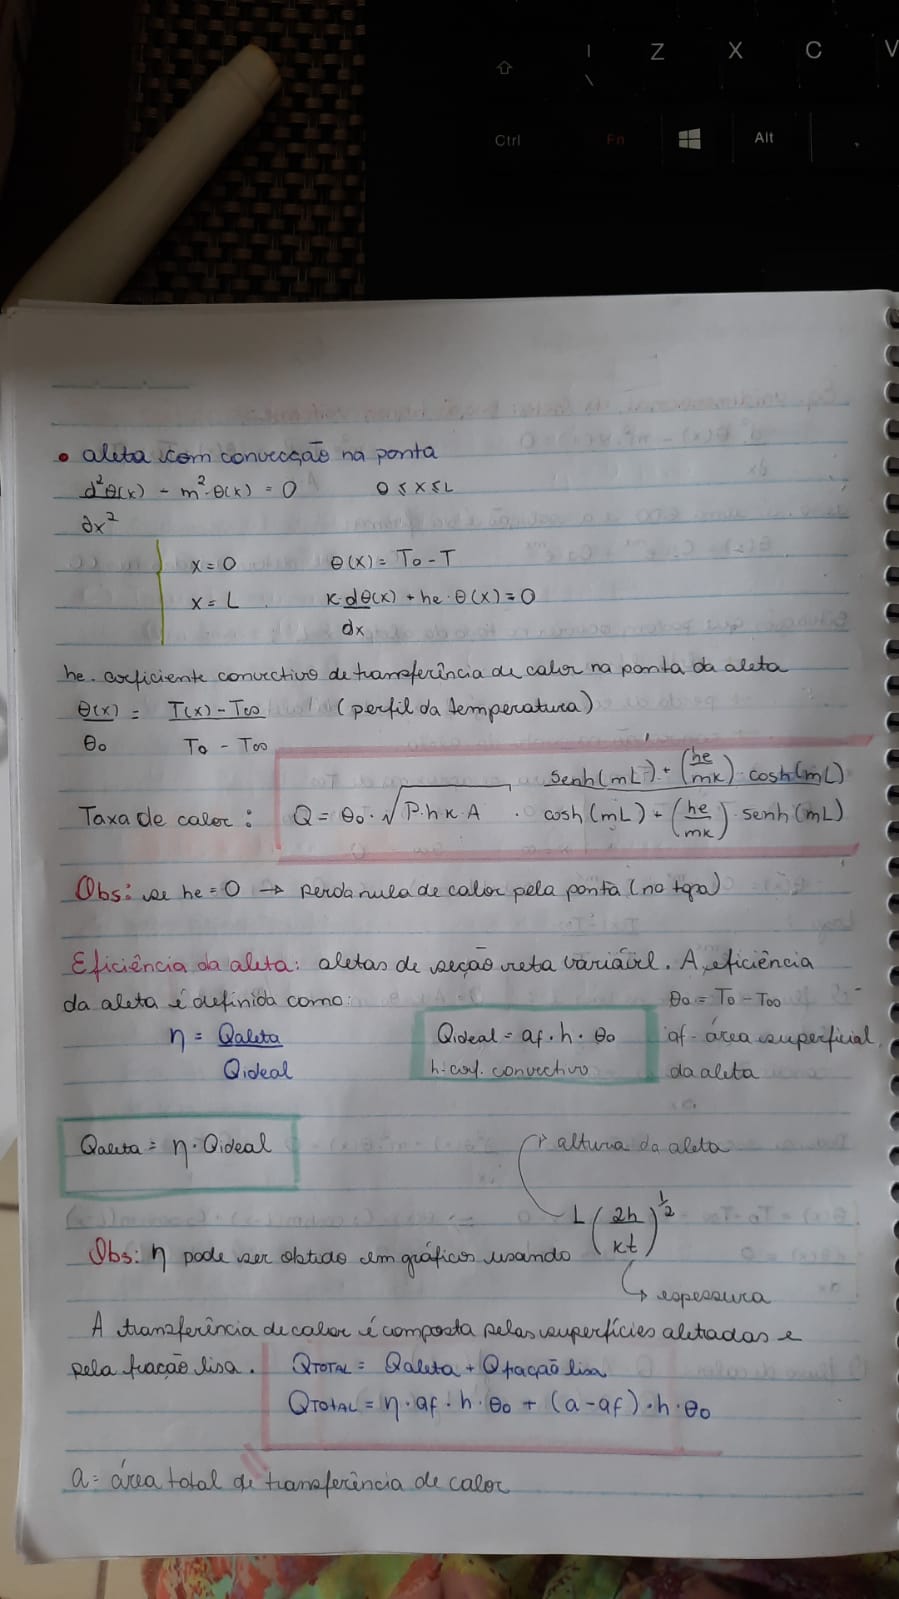 Z X C V
\
Ctrl Fn Alt
• aleta com convecção na ponta
d²θ(x) - m²·θ(x) = 0 0 ≤ x ≤ L
∂x²
x = 0 θ(x) = To - T
x = L K·dθ(x) + he·θ(x) = 0
dx
he. coeficiente convectivo de transferência de calor na ponta da aleta
θ(x) = T(x) - T∞ (perfil da temperatura)
θo To - T∞
Taxa de calor: Q = θo · √P·h·K·A · senh(mL) + (he/mk) · cosh(mL)
cosh(mL) + (he/mk) · senh(mL)
Obs: se he = 0 → perda nula de calor pela ponta (no topo)
Eficiência da aleta: aletas de secção reta variável. A eficiência
da aleta é definida como: θo = To - T∞
η = Qaleta Qideal = af · h · θo af - área superficial
Qideal h - coef. convectivo da aleta
Qaleta = η · Qideal → altura da aleta
Obs: η pode ser obtido em gráficos usando L (2h/kt)^1/2
→ espessura
A transferência de calor é composta pelas superfícies aletadas e
pela fração lisa. QTOTAL = Qaleta + Qfração lisa
QTOTAL = η · af · h · θo + (a - af) · h · θo
a = área total de transferência de calor